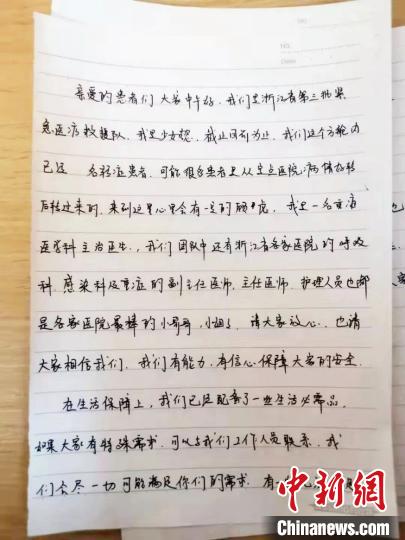 NO.
Date
亲爱的患者们 大家中午好,我们是浙江省第三批紧
急医疗救援队,我是少女怒.截止目前为止,我们这个方舱内
已经 名轻症患者.可能很多患者是从定点医院病情好转
后转过来的,来到这里心里会有一定的顾虑,我是一名重症
医学科主治医生,我们团队中还有浙江省各家医院的呼吸
科.感染科及重症的副主任医师,主任医师,护理人员也都
是各家医院最棒的小哥哥,小姐姐,请大家放心,也请
大家相信我们,我们有能力,有信心保障大家的安全.
在生活保障上,我们已经配齐了一些生活必需品,
如果大家有特殊需求,可以与我们工作人员联系,我
们会尽一切可能满足你们的需求.有一
中新网
Chinanews.com